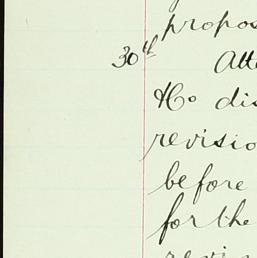 propos
30th
Atte
Ho dis
revisio
before
for the
revis